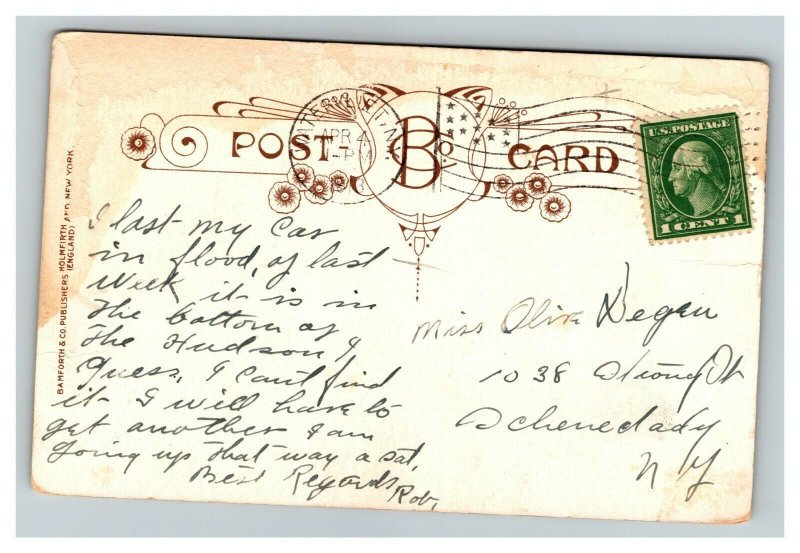 POST CARD
B Co
WATERVLIET, N.Y.
APR 4
PM
U.S. POSTAGE
1 CENT 1
BAMFORTH & CO. PUBLISHERS HOLMFIRTH AND NEW YORK.
(ENGLAND)
I last my car
in flood, of last
Week, it is in
The bottom of
The Hudson I
Guess, I cant find
it I will have to
get another I am
Going up that way a sat,
Best Regards
Rob,
Miss Olive Degen
1038 Strong St
Schenedady
N Y